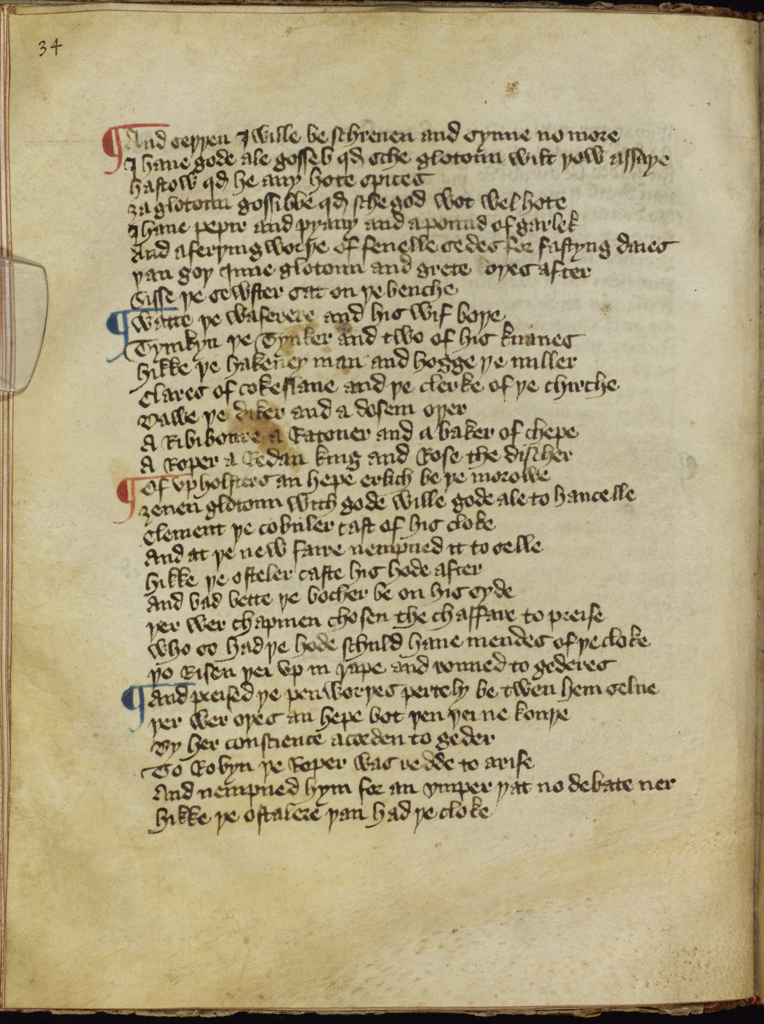 34
And seþþen I wille be schreuen and synne no more
I haue gode ale gosseb qd sche glotoun wilt þow assaye
hastow qd he any hote spices
ȝa glotoun gossibbe qd sche god wot wel hote
I haue pepir and pyany and a pound of garlek
And a ferþyng worþe of fenelle sedes for fastyng daies
þan goþ Inne glotoun and grete oþes after
Sisse þe sewster sat on þe benche
Watte þe waferere and his wif boþe
Tymkyn þe Tynker and two of his knaues
hikke þe hakeney man and hogge þe miller
Clares of cokeslane and þe clerke of þe chirche
Dawe þe diker and a dosein oþer
A Ribiboure a Ratoner and a baker of chepe
A Roper a Redan king and Rose the discher
Of vpholsters an hepe erlich be þe morowe
ȝeuen glotoun with gode wille gode ale to hancelle
Clement þe cobuler cast of his cloke
And at þe new faire nempned it to selle
hikke þe osteler caste his hode after
And bad bette þe bocher be on his syde
þer wer chapmen chosen the chaffare to preise
Who so had þe hode schuld haue mendes of þe cloke
þo Risen þei vp in rape and rouned to gederes
And preised þe penworþes pertely be twen hem selue
þer wer oþes an hepe bot þen þei ne konþe
By her conscience acorden to geder
To Robyn þe Roper was redde to arise
And nempned hym for an ymper þat no debate ner
hikke þe ostalere þan had þe cloke